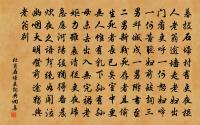 暮投石壕村有吏夜捉
人老翁逾墻走老婦出
門看吏呼一何怒婦啼
一何苦聽婦前致詞三
男鄴城戍一男附書至
二男新戰死存者且偷
生死者長已矣室中更
無人惟有乳下孫有孫
母未去出入無完裙老
嫗力雖衰請從吏夜歸
急應河陽役猶得備晨
炊夜久語聲絕如聞泣
幽咽天明登前途獨與
老翁別
杜甫石壕吏